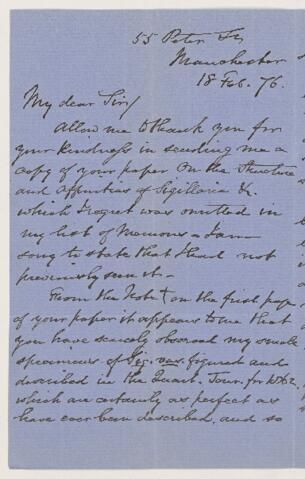 55 Peter St
Manchester
18 Feb. 76.
My dear Sir/
Allow me to thank you for
your kindness in sending me a
copy of your paper On the Structure
and Affinities of Sigillaria &c.
which I regret was omitted in
my list of Memoirs. I am
sorry to state that I had not
previously seen it.
From the Note † on the first page
of your paper it appears to me that
you have scarcely observed my small
specimens of Sig. vas. figured and
described in the Quart. Jour. for 1862,
which are certainly as perfect as
have ever been described, and so